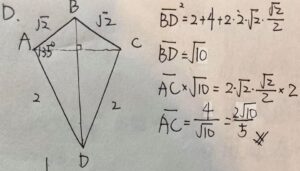 D.
B
√2 √2
A 135° C
2 2
D
BD̅² = 2+4+2·2·√2·√2/2
BD̅ = √10
AC̅ × √10 = 2·√2·√2/2 × 2
AC̅ = 4/√10 = 2√10/5